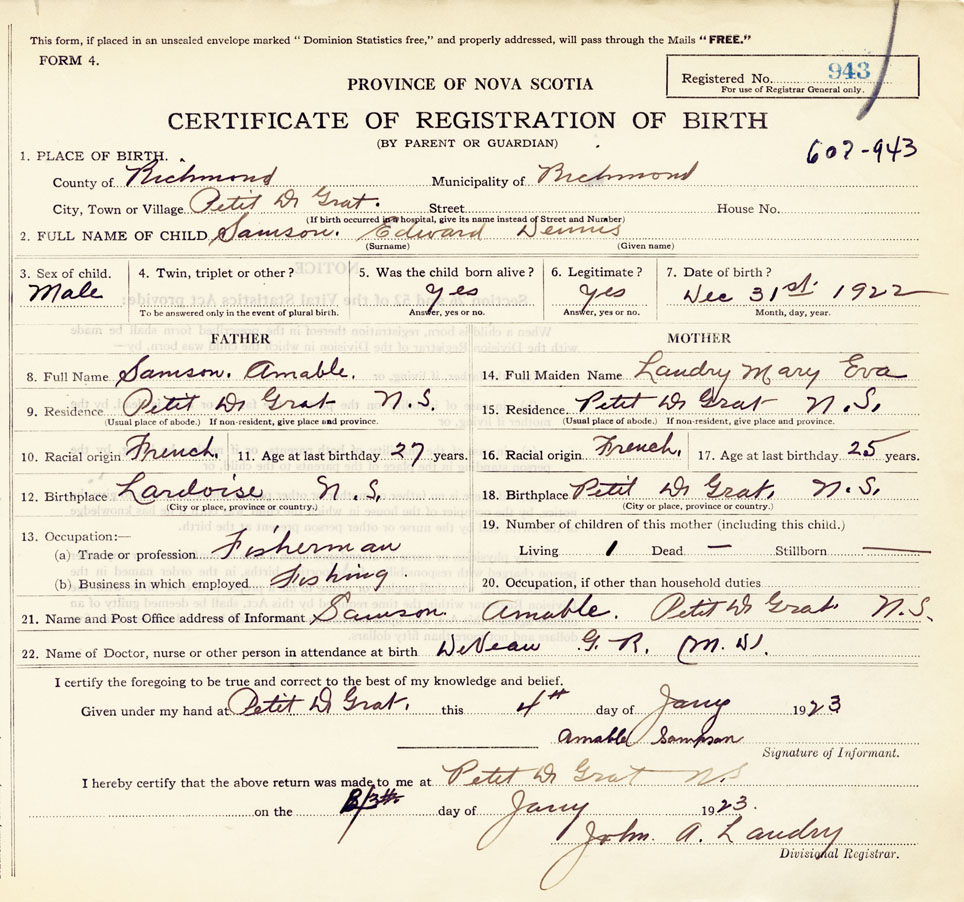 This form, if placed in an unsealed envelope marked "Dominion Statistics free," and properly addressed, will pass through the Mails "FREE."
FORM 4.
Registered No. 943
For use of Registrar General only.
PROVINCE OF NOVA SCOTIA
CERTIFICATE OF REGISTRATION OF BIRTH
(BY PARENT OR GUARDIAN)
607-943
1. PLACE OF BIRTH.
County of Richmond Municipality of Richmond
City, Town or Village Petit D Grat. Street House No.
(If birth occurred in a hospital, give its name instead of Street and Number)
2. FULL NAME OF CHILD Samson. Edward Dennis
(Surname) (Given name)
3. Sex of child. Male
4. Twin, triplet or other?
To be answered only in the event of plural birth.
5. Was the child born alive? Yes
Answer, yes or no.
6. Legitimate? Yes
Answer, yes or no.
7. Date of birth? Dec 31st. 1922
Month, day, year.
FATHER
8. Full Name Samson. Amable.
9. Residence Petit D Grat N.S.
(Usual place of abode.) If non-resident, give place and province.
10. Racial origin French. 11. Age at last birthday 27 years.
12. Birthplace Lardoise N.S.
(City or place, province or country.)
13. Occupation:—
(a) Trade or profession Fisherman
(b) Business in which employed Fishing.
MOTHER
14. Full Maiden Name Landry Mary Eva
15. Residence Petit D Grat N.S.
(Usual place of abode.) If non-resident, give place and province.
16. Racial origin French. 17. Age at last birthday 25 years.
18. Birthplace Petit D Grat, N.S.
(City or place, province or country.)
19. Number of children of this mother (including this child.)
Living 1 Dead — Stillborn —
20. Occupation, if other than household duties
21. Name and Post Office address of Informant Samson Amable. Petit D Grat N.S.
22. Name of Doctor, nurse or other person in attendance at birth DeVeau G. R. (M.D.
I certify the foregoing to be true and correct to the best of my knowledge and belief.
Given under my hand at Petit D Grat. this 4th day of Jany 1923
Amable Sampson
Signature of Informant.
I hereby certify that the above return was made to me at Petit D Grat N.S
on the day of Jany 1923.
John. A. Landry
Divisional Registrar.